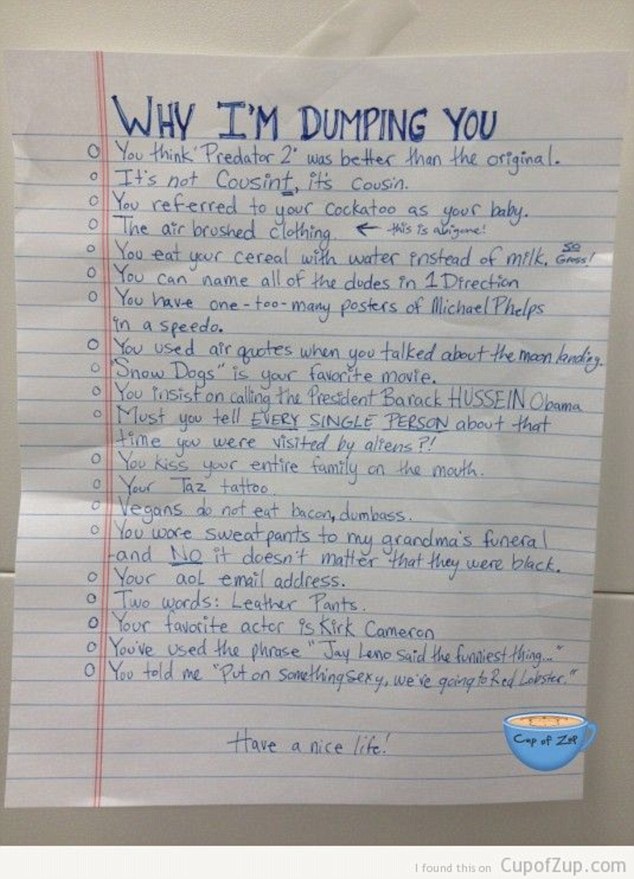 WHY I'M DUMPING YOU
You think "Predator 2" was better than the original.
It's not Cousint, it's cousin.
You referred to your cockatoo as your baby.
The air brushed clothing. ← this is a biggone!
You eat your cereal with water instead of milk. SO Gross!
You can name all of the dudes in 1 Direction
You have one-too-many posters of Michael Phelps
in a speedo.
You used air quotes when you talked about the moon landing.
"Snow Dogs" is your favorite movie.
You insist on calling the President Barack HUSSEIN Obama
Must you tell EVERY SINGLE PERSON about that
time you were visited by aliens?!
You kiss your entire family on the mouth.
Your Taz tattoo.
Vegans do not eat bacon, dumbass.
You wore sweatpants to my grandma's funeral
-and NO it doesn't matter that they were black.
Your aol email address.
Two words: Leather Pants.
Your favorite actor is Kirk Cameron
You've used the phrase "Jay Leno said the funniest thing..."
You told me "Put on something sexy, we're going to Red Lobster."
Have a nice life!
Cup of Zup
I found this on CupofZup.com